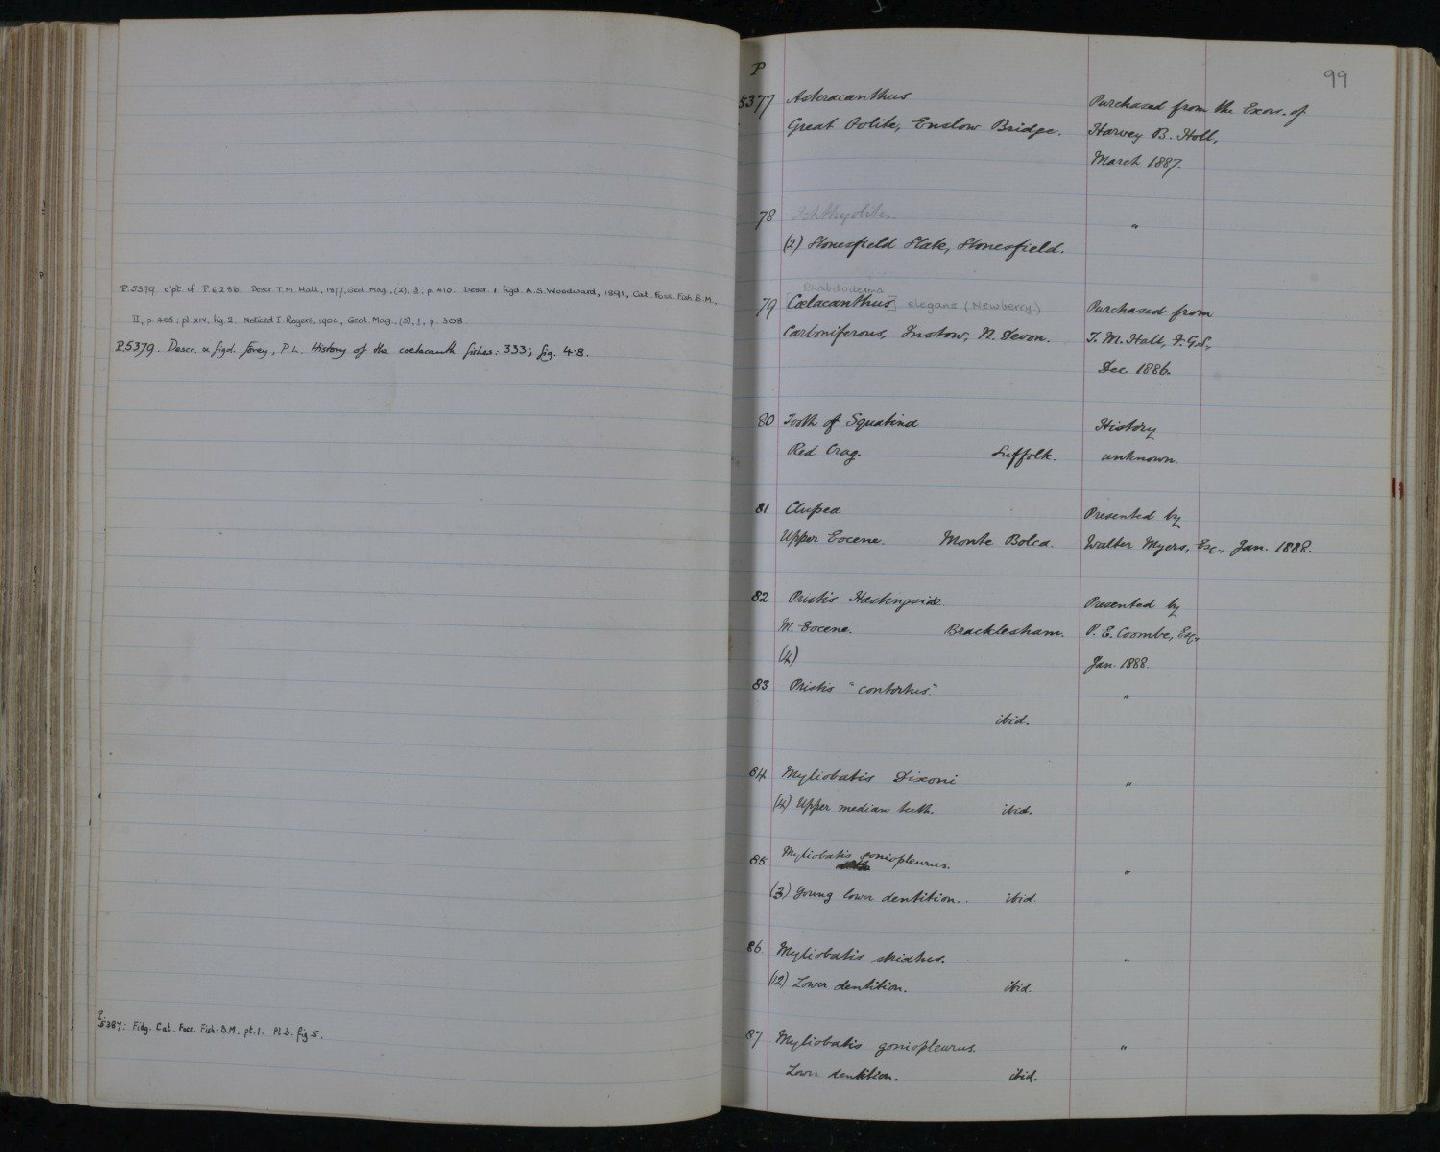 P.5379 c'pt. of P.6286. Descr. T.M. Hall, 1877, Geol. Mag., (2), 3, p. 410. Descr. & figd. A.S. Woodward, 1891, Cat. Foss. Fish. B.M.,
II, p. 405, pl. xiv, fig. 2. Noticed I. Rogers, 190, Geol. Mag., (5), p. 303.
P.5379. Descr. & figd. Forey, P.L. History of the coelacanth fishes: 333; fig. 4.8.
P.
5387: Fidg. Cat. Foss. Fish. B.M. pt. 1. Pl. fig 5.
99
P
5377 Asteracanthus Purchased from the Exors. of
Great Oolite, Enslow Bridge. Harvey B. Holl,
March 1887.
78 Ichthyolites "
(2) Stonesfield Slate, Stonesfield.
Rhabdoderma
79 [Cœlacanthus] elegans (Newberry) Purchased from
Carboniferous, Instow, N. Devon. T. M. Hall, F.G.S.,
Dec. 1886.
80 Tooth of Squatina History
Red Crag. Suffolk. unknown.
81 Clupea Presented by
Upper Eocene. Monte Bolca. Walter Myers, Esq., Jan. 1888.
82 Pristis Hastingsiæ. Presented by
M. Eocene. Bracklesham. P. E. Coombe, Esq.,
(4) Jan. 1888.
83 Pristis "contortus". "
ibid.
84 Myliobatis Dixoni "
(4) Upper median teeth. ibid.
85 Myliobatis goniopleurus. "
(3) Young lower dentition. ibid.
86 Myliobatis striatus. "
(12) Lower dentition. ibid.
87 Myliobatis goniopleurus. "
Lower dentition. ibid.